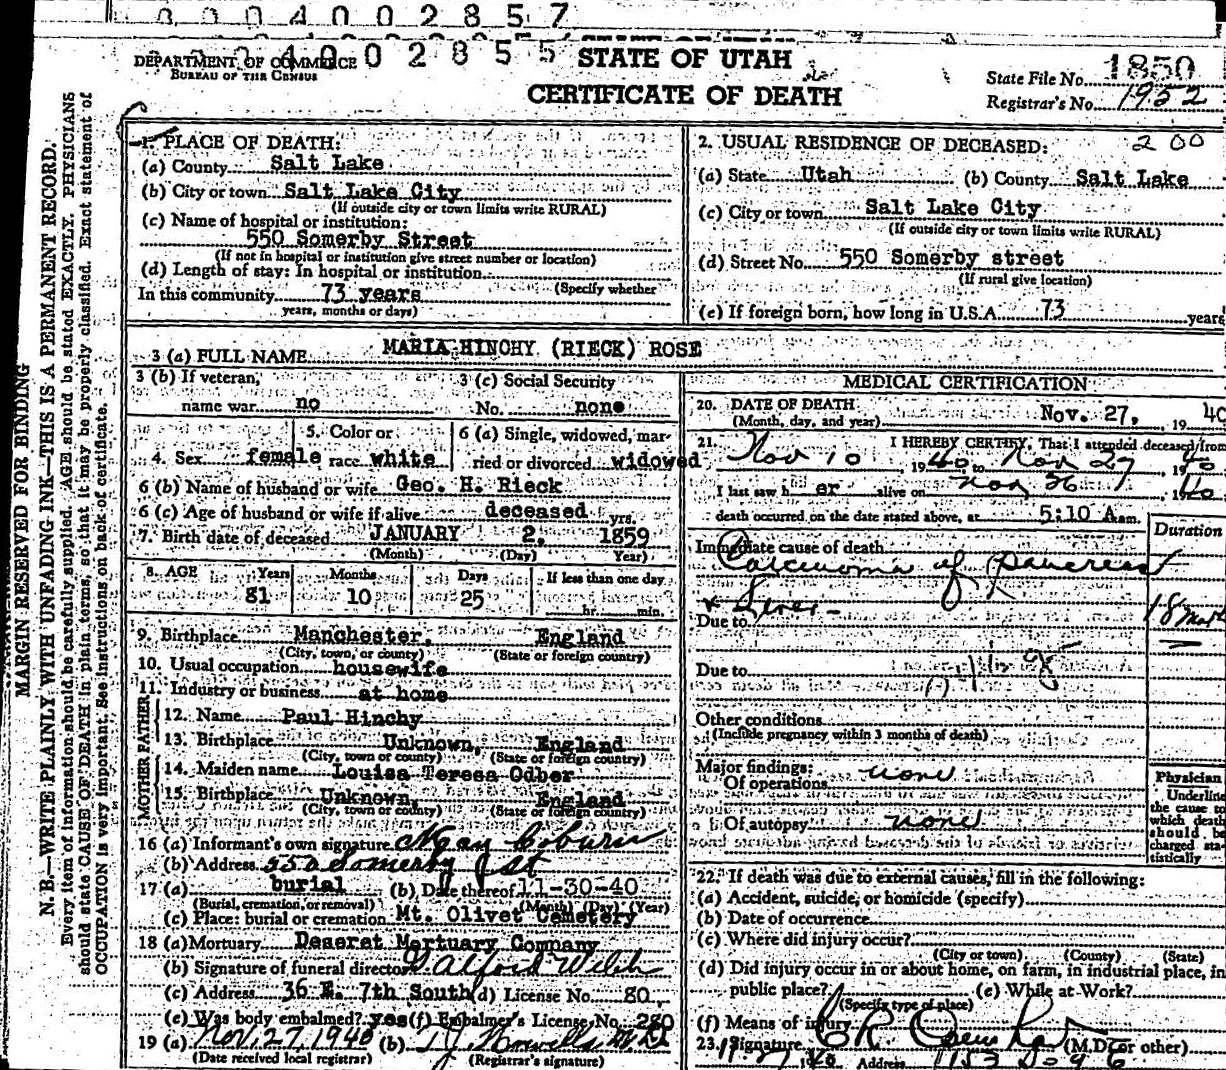 0 0 0 4 0 0 2 8 5 7
DEPARTMENT OF COMMERCE
BUREAU OF THE CENSUS
0 0 4 0 0 2 8 5 5
STATE OF UTAH
CERTIFICATE OF DEATH
State File No. 1850
Registrar's No. 1952
MARGIN RESERVED FOR BINDING
N. B.—WRITE PLAINLY WITH UNFADING INK—THIS IS A PERMANENT RECORD.
Every item of information should be carefully supplied. AGE should be stated EXACTLY. PHYSICIANS
should state CAUSE OF DEATH in plain terms, so that it may be properly classified. Exact statement of
OCCUPATION is very important. See instructions on back of certificate.
1. PLACE OF DEATH:
(a) County Salt Lake
(b) City or town Salt Lake City
(If outside city or town limits write RURAL)
(c) Name of hospital or institution:
550 Somerby Street
(If not in hospital or institution give street number or location)
(d) Length of stay: In hospital or institution
(Specify whether
In this community 73 years
years, months or days)
2. USUAL RESIDENCE OF DECEASED: 200
(a) State Utah (b) County Salt Lake
(c) City or town Salt Lake City
(If outside city or town limits write RURAL)
(d) Street No. 550 Somerby street
(If rural give location)
(e) If foreign born, how long in U.S.A. 73 years
3 (a) FULL NAME MARIA HINCHY (RIECK) ROSE
3 (b) If veteran, 3 (c) Social Security
name war no No. none
4. Sex female 5. Color or race white 6 (a) Single, widowed, married or divorced widowed
6 (b) Name of husband or wife Geo. H. Rieck
6 (c) Age of husband or wife if alive deceased yrs.
7. Birth date of deceased JANUARY 2, 1859
(Month) (Day) Year)
8. AGE Years Months Days If less than one day
81 10 25 hr. min.
9. Birthplace Manchester, England
(City, town, or county) (State or foreign country)
10. Usual occupation housewife
11. Industry or business at home
FATHER
12. Name Paul Hinchy
13. Birthplace Unknown, England
(City, town or county) (State or foreign country)
MOTHER
14. Maiden name Louisa Teresa Odber
15. Birthplace Unknown, England
(City, town or county) (State or foreign country)
16 (a) Informant's own signature Coburn
(b) Address 550 Somerby St
17 (a) burial (b) Date thereof 11-30-40
(Burial, cremation, or removal) (Month) (Day) (Year)
(c) Place: burial or cremation Mt. Olivet Cemetery
18 (a) Mortuary Deseret Mortuary Company
(b) Signature of funeral director Alford Welsh
(c) Address 36 E. 7th South (d) License No. 80
(e) Was body embalmed? yes (f) Embalmer's License No. 280
19 (a) Nov. 27, 1940 (b) M D
(Date received local registrar) (Registrar's signature)
MEDICAL CERTIFICATION
20. DATE OF DEATH Nov. 27, 19 40
(Month, day, and year)
21. I HEREBY CERTIFY, That I attended deceased from
Nov 10, 1940 to Nov 27, 1940
I last saw h er alive on Nov 26, 1940
death occurred on the date stated above, at 5:10 A m.
Duration
Immediate cause of death
Carcinoma of pancreas
& Liver
18 mo
Due to
Due to
Other conditions
(Include pregnancy within 3 months of death)
Major findings:
Of operations none
Of autopsy none
Physician
Underline
the cause to
which death
should be
charged sta-
tistically
22. If death was due to external causes, fill in the following:
(a) Accident, suicide, or homicide (specify)
(b) Date of occurrence
(c) Where did injury occur?
(City or town) (County) (State)
(d) Did injury occur in or about home, on farm, in industrial place, in
public place? (e) While at Work?
(Specify type of place)
(f) Means of injury
23. Signature (M.D. or other)
Address